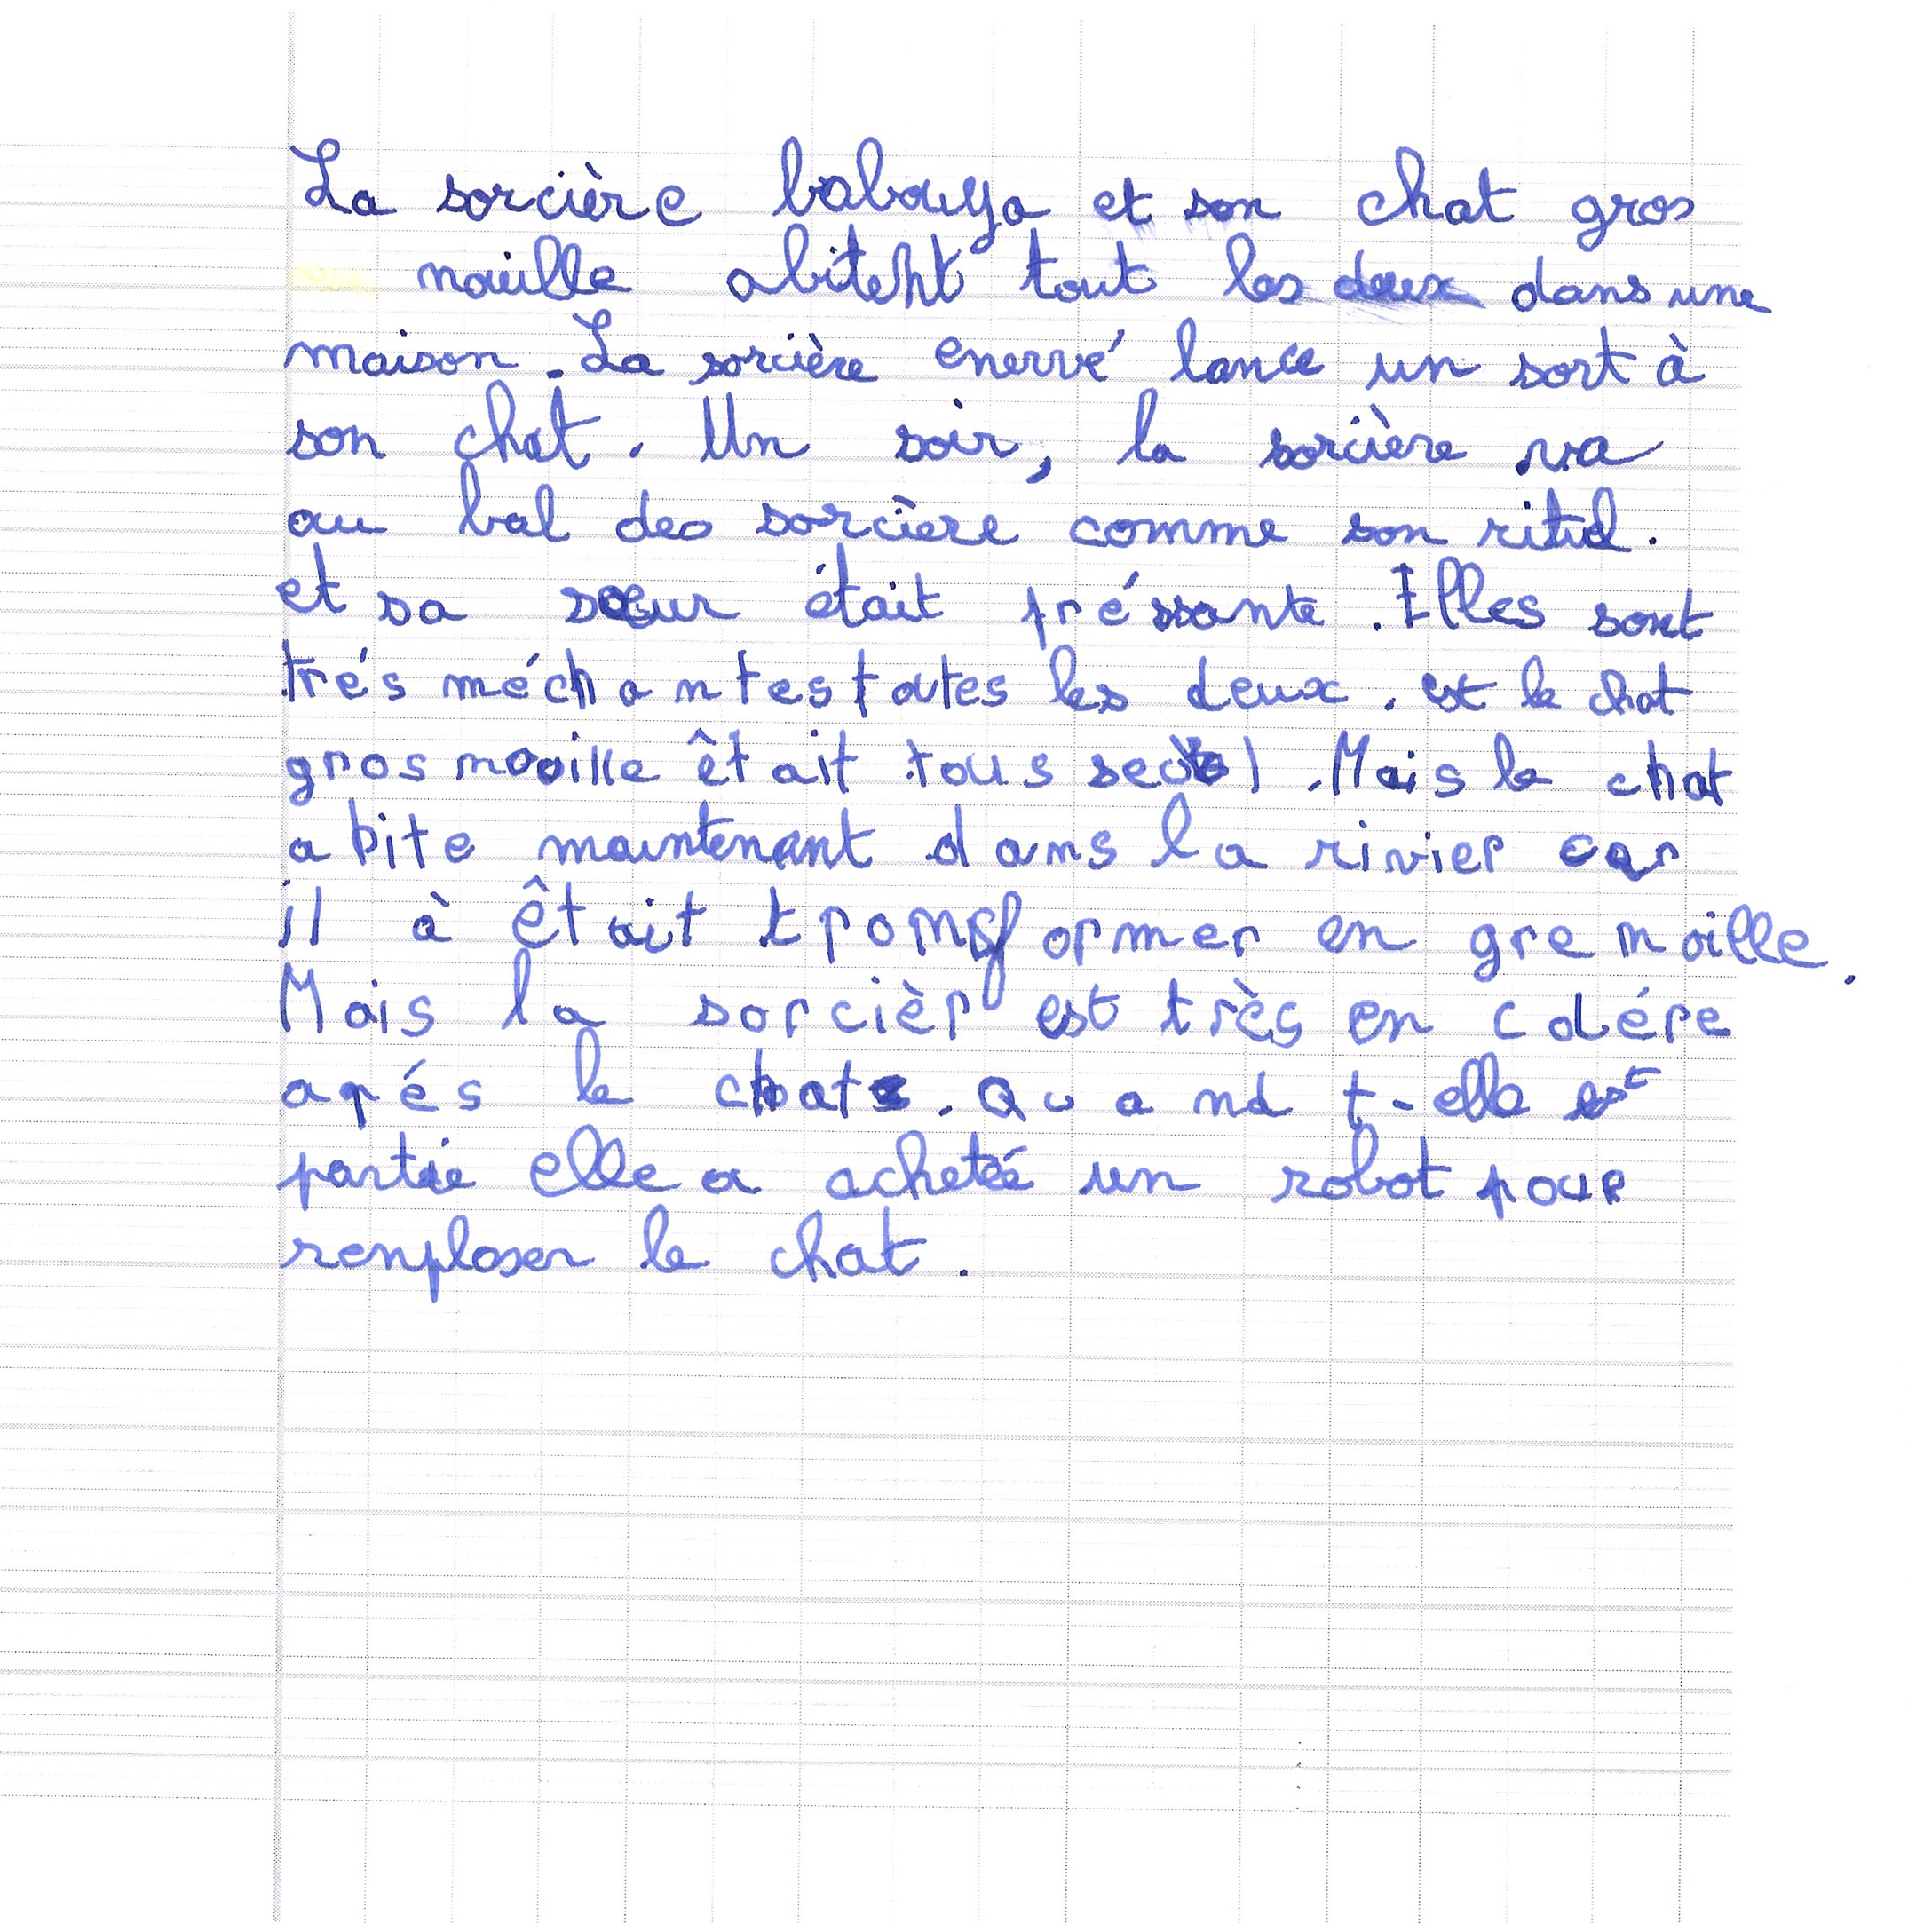 La sorcière babouya et son chat gros
nouille abitent tout les deux dans une
maison. La sorcière enervé lance un sort à
son chat. Un soir, la sorcière va
au bal des sorcière comme son rituel.
et sa sœur était préssante. Illes sont
trés méchantes toutes les deux. et le chat
gros nouille êtait tous seul. Mais le chat
abite maintenant dans la rivier car
il à êtait transformer en grenoille.
Mais la sorcièr est très en colére
apés le chat. Quand t-elle est
partie elle a acheté un robot pour
renplaser le chat.